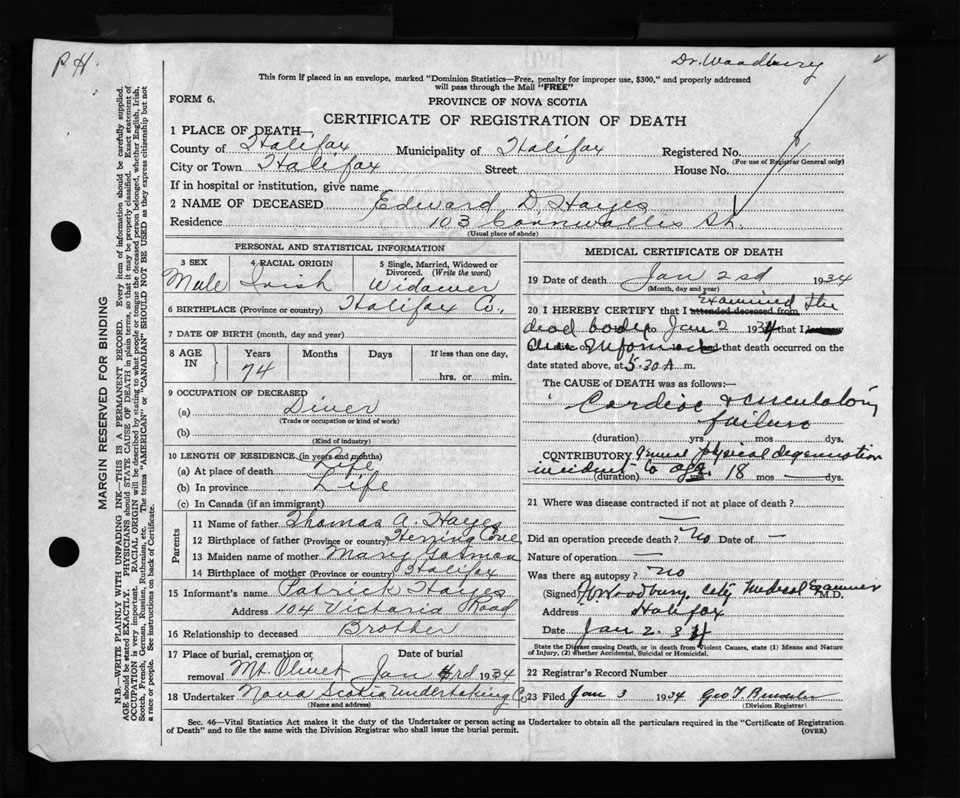 P. H.
Dr. Woodbury
This form if placed in an envelope, marked "Dominion Statistics—Free, penalty for improper use, $300," and properly addressed
will pass through the Mail "FREE"
FORM 6.
PROVINCE OF NOVA SCOTIA
CERTIFICATE OF REGISTRATION OF DEATH
1 PLACE OF DEATH—
County of Halifax Municipality of Halifax Registered No.
(For use of Registrar General only)
City or Town Halifax Street House No.
If in hospital or institution, give name
2 NAME OF DECEASED Edward D. Hayes
Residence 103 Cornwallis St.
(Usual place of abode)
PERSONAL AND STATISTICAL INFORMATION
3 SEX 4 RACIAL ORIGIN 5 Single, Married, Widowed or
Divorced. (Write the word)
Male Irish Widower
6 BIRTHPLACE (Province or country) Halifax Co.,
7 DATE OF BIRTH (month, day and year)
8 AGE IN Years Months Days If less than one day,
74 hrs. or min.
9 OCCUPATION OF DECEASED
(a) Diver
(Trade or occupation or kind of work)
(b)
(Kind of industry)
10 LENGTH OF RESIDENCE (in years and months)
(a) At place of death Life
(b) In province Life
(c) In Canada (if an immigrant)
Parents
11 Name of father Thomas A. Hayes
12 Birthplace of father (Province or country) Herring Cove
13 Maiden name of mother Mary
14 Birthplace of mother (Province or country) Halifax
15 Informant's name Patrick Hayes
Address 104 Victoria Road
16 Relationship to deceased Brother
17 Place of burial, cremation or removal Mt. Olivet
Date of burial Jan rd 1934
18 Undertaker Nova Scotia Undertaking Co
(Name and address)
MEDICAL CERTIFICATE OF DEATH
19 Date of death Jan 2nd 1934
(Month, day and year)
20 I HEREBY CERTIFY that I attended deceased from Examined the
dead body to Jan 2 1934 that I
and that death occurred on the
date stated above, at 5.30 A m.
The CAUSE OF DEATH was as follows:—
Cardiac & circulatory
failure
(duration) yrs. mos. dys.
CONTRIBUTORY General physical degeneration
incident to age.
(duration) yrs. 18 mos dys.
21 Where was disease contracted if not at place of death?
—
Did an operation precede death? No Date of —
Nature of operation —
Was there an autopsy? No
(Signed) Woodbury, City Medical Examiner M.D.
Address Halifax
Date Jan 2. 34
State the Disease causing Death, or in death from Violent Causes, state (1) Means and Nature
of Injury, (2) Whether Accidental, Suicidal or Homicidal.
22 Registrar's Record Number
23 Filed Jan 3 1934 Geo T.
(Division Registrar)
Sec. 46—Vital Statistics Act makes it the duty of the Undertaker or person acting as Undertaker to obtain all the particulars required in the "Certificate of Registration
of Death" and to file the same with the Division Registrar who shall issue the burial permit. (OVER)
MARGIN RESERVED FOR BINDING
N.B.—WRITE PLAINLY WITH UNFADING INK—THIS IS A PERMANENT RECORD. Every item of information should be carefully supplied.
AGE should be stated EXACTLY. PHYSICIANS should STATE CAUSE OF DEATH in plain terms, so that it may be properly classified. Exact statement of
OCCUPATION is very important. RACIAL ORIGIN will be described by stating to what people or tongue the deceased person belonged, whether English, Irish,
Scotch, French, German, Russian, Ruthenian, etc. The terms "AMERICAN" or "CANADIAN" SHOULD NOT BE USED as they express citizenship but not
a race or people. See instructions on back of Certificate.